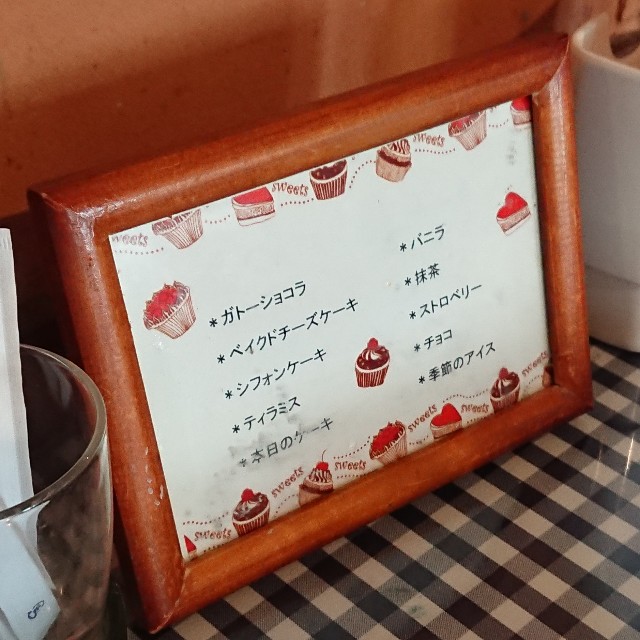 sweets
sweets
sweets
*ガトーショコラ
*ベイクドチーズケーキ
*シフォンケーキ
*ティラミス
*本日のケーキ
*バニラ
*抹茶
*ストロベリー
*チョコ
*季節のアイス
sweets
sweets
sweets
sweets
sweets
sweets